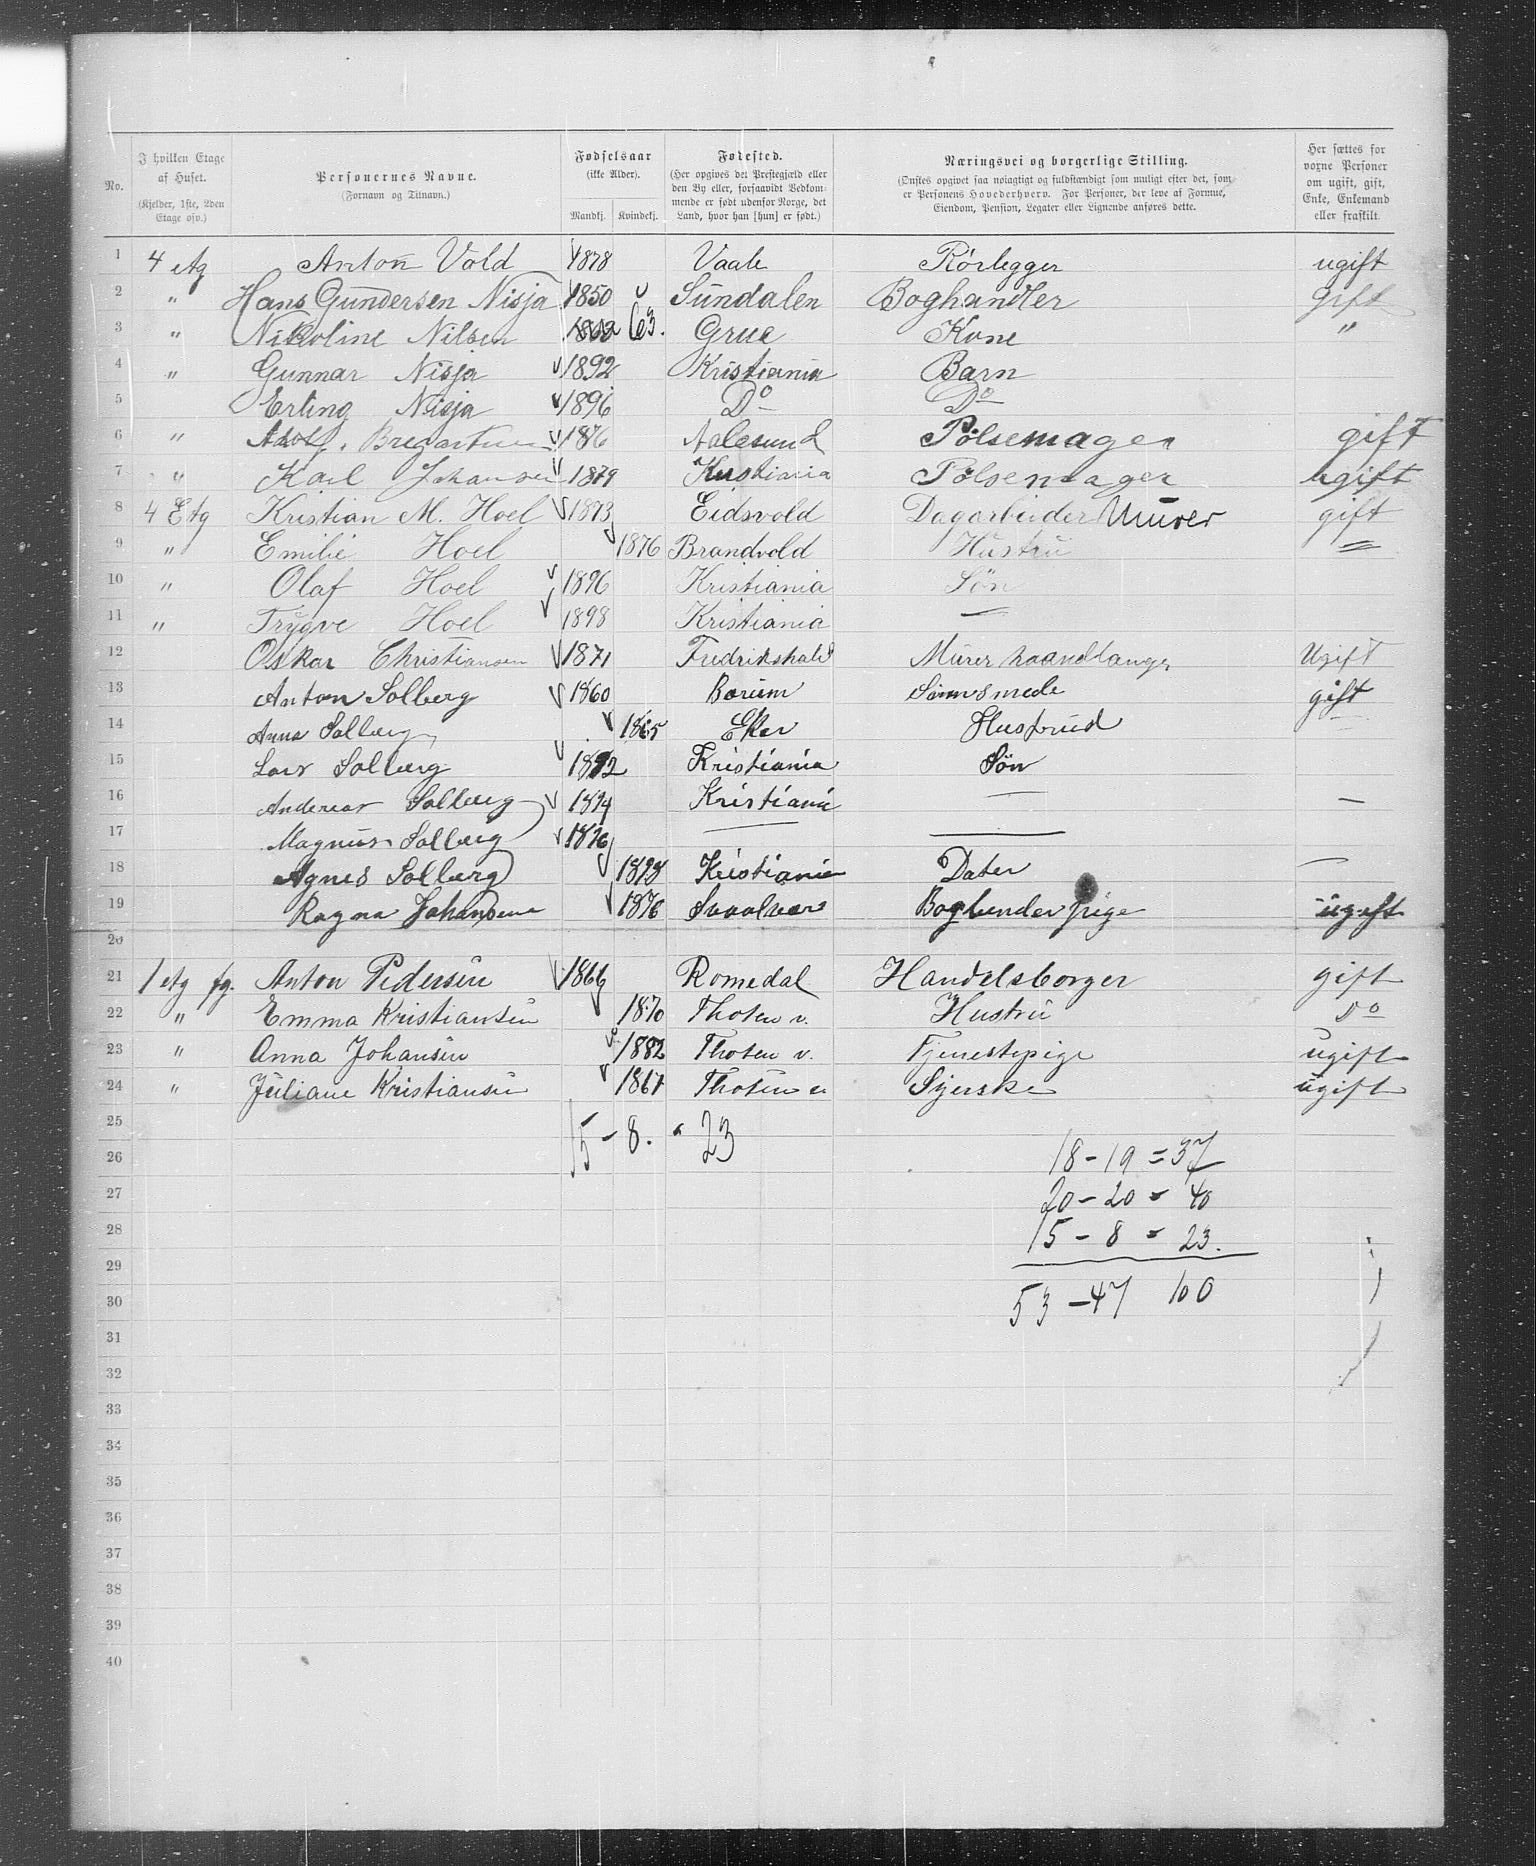 No. | I hvilken Etage af Huset. (Kjelder, 1ste, 2den Etage osv.) | Personernes Navne. (Fornavn og Tilnavn.) | Fødselsaar (ikke Alder). Mandkj. Kvindekj. | Fødested. (Her opgives det Prestegjæld eller den By eller, forsaavidt Vedkommende er født udenfor Norge, det Land, hvor han [hun] er født.) | Næringsvei og borgerlige Stilling. (Ønskes opgivet saa nøiagtigt og fuldstændigt som muligt efter det, som er Personens Hovederhverv. For Personer, der leve af Formue, Eiendom, Pension, Legater eller Lignende anføres dette. | Her sættes for voxne Personer om ugift, gift, Enke, Enkemand eller fraskilt.
1 4 etg Anton Vold 1878 Vaale Rörlegger ugift
2 " Hans Gundersen Nisja 1850 Sundalen Boghandler gift
3 " Nikoline Nilsen 63. Grue Kone "
4 " Gunnar Nisja 1892 Kristiania Barn
5 Erling Nisja 1896 Do Do
6 " 1876 Aalesund Pölsemager gift
7 " Karl Johansen 1879 Kristiania Pölsemager ugift
8 4 Etg Kristian M. Hoel 1873 Eidsvold Dagarbeider Murer gift
9 " Emilie Hoel 1876 Brandvold Hustru =
10 " Olaf Hoel 1896 Kristiania Sön
11 " Trygve Hoel 1898 Kristiania —
12 Oskar Christiansen 1871 Fredrikshald Murer haandlanger Ugift
13 Anton Solberg 1860 Bærum gift
14 Anna Solberg 1865 Eker Hustrud —
15 Lars Solberg 1892 Kristiania Sön
16 Andreas Solberg 1894 Kristiania — —
17 Magnus Solberg 1896 — —
18 Agnes Solberg 1898 Kristiania Dater —
19 Ragna Johansene 1876 Svaalvær Bogbinder pige ugift
20
21 1 etg fg. Anton Pedersen 1866 Romedal Handelsborger gift
22 " Emma Kristiansen 1870 Thoten v. Hustru Do
23 " Anna Johansen 1882 Thoten v. Tjenestepige ugift
24 " Juliane Kristiansen 1867 Thoten v Syerske ugift
25 15 - 8. " 23
26 18 - 19 = 37
27 20 - 20 = 40
28 15 - 8 = 23.
29
30 53 - 47 100
31
32
33
34
35
36
37
38
39
40